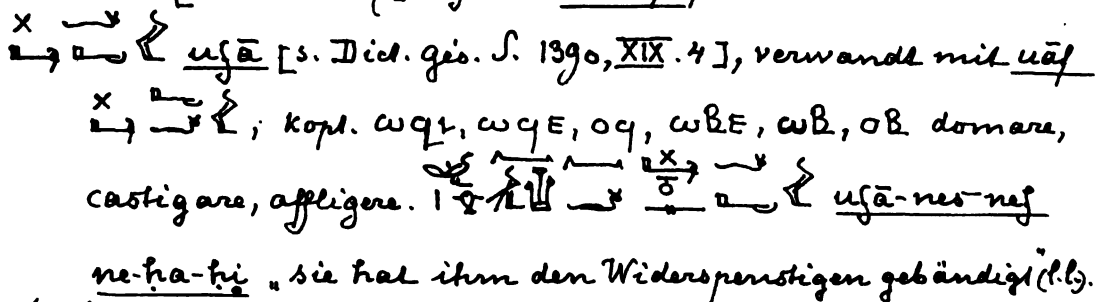 ufā [s. Dict. géo. S. 1390, XIX. 4], verwandt mit uāf
; kopt. ⲱϥⲓ, ⲱϥⲉ, ⲟϥ, ⲱⲃⲉ, ⲱⲃ, ⲟⲃ domare,
castigare, affligere. ufā-nes-nef
ne-ḥa-ḥi „sie hat ihm den Widerspenstigen gebändigt“ (l.l).